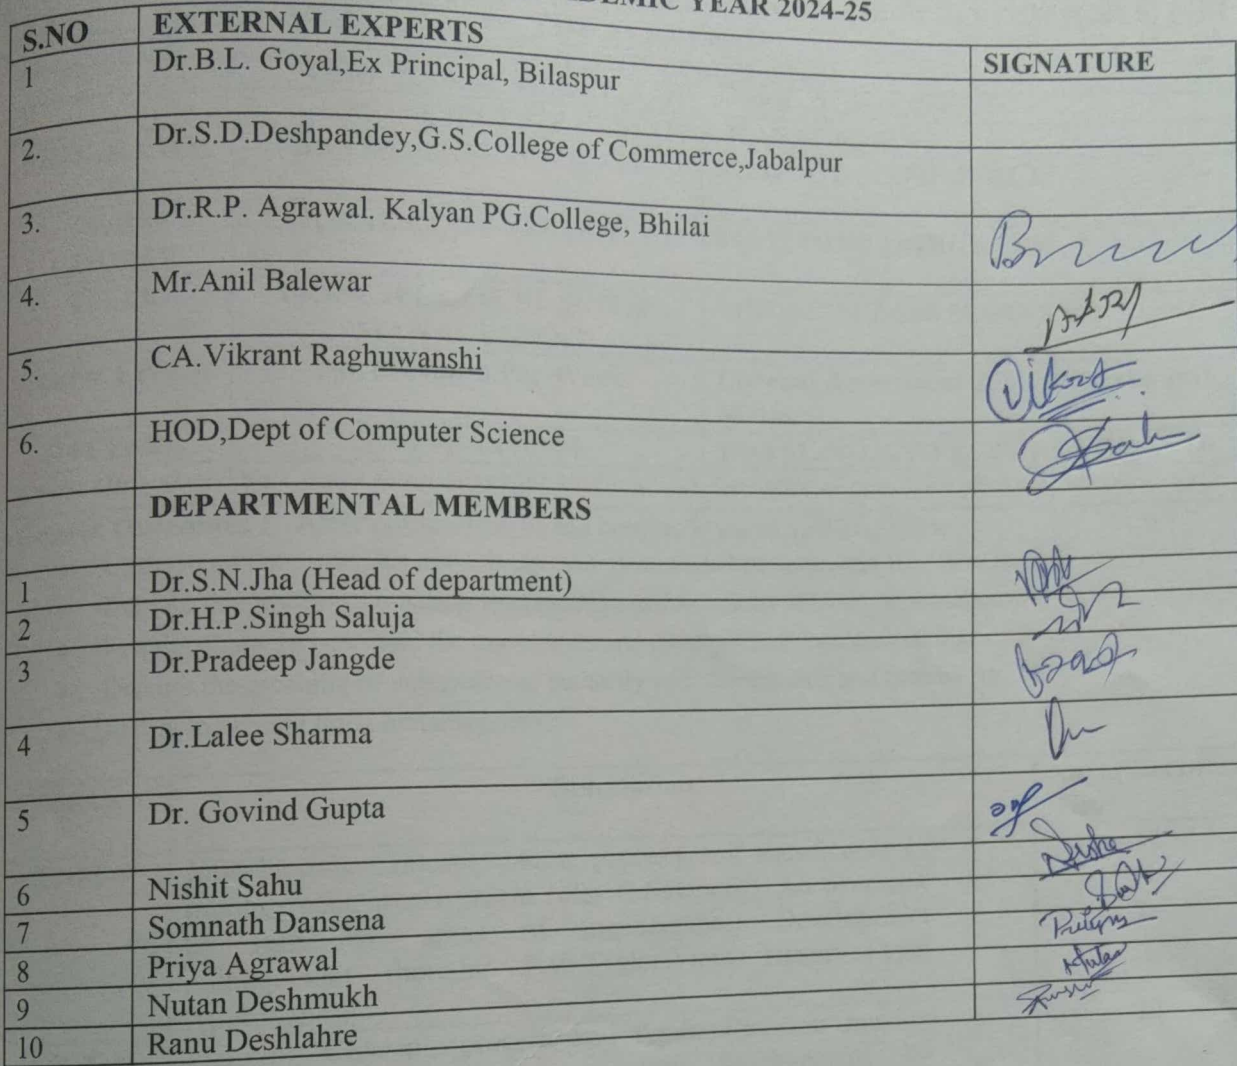 YEAR 2024-25
S.NO EXTERNAL EXPERTS SIGNATURE
1 Dr.B.L. Goyal,Ex Principal, Bilaspur
2. Dr.S.D.Deshpandey,G.S.College of Commerce,Jabalpur
3. Dr.R.P. Agrawal. Kalyan PG.College, Bhilai
4. Mr.Anil Balewar
5. CA.Vikrant Raghuwanshi
6. HOD,Dept of Computer Science
DEPARTMENTAL MEMBERS
1 Dr.S.N.Jha (Head of department)
2 Dr.H.P.Singh Saluja
3 Dr.Pradeep Jangde
4 Dr.Lalee Sharma
5 Dr. Govind Gupta
6 Nishit Sahu
7 Somnath Dansena
8 Priya Agrawal
9 Nutan Deshmukh
10 Ranu Deshlahre